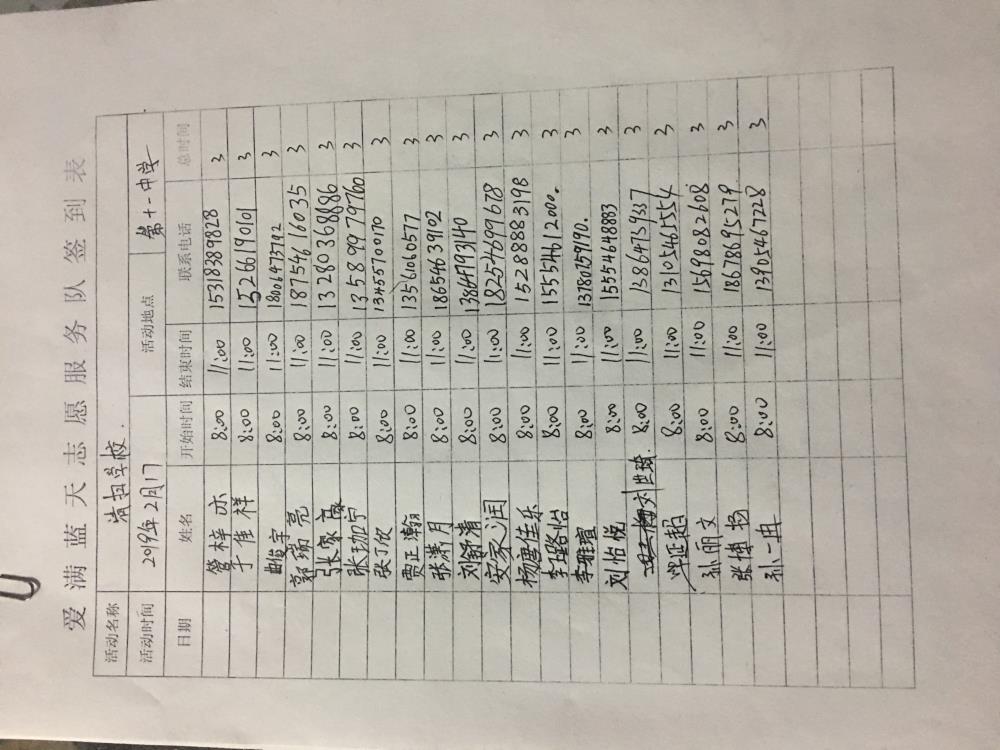 爱满蓝天志愿服务队签到表
活动名称 清扫学校
活动时间 2019年2月17 活动地点 第十一中学
日期 姓名 开始时间 结束时间 联系电话 总时间
管梓亦 8:00 11:00 15318389828 3
于佳祥 8:00 11:00 15266190101 3
俊宇 8:00 11:00 18006473792 3
郭瑞亮 8:00 11:00 18754616035 3
张家赢 8:00 11:00 13280369886 3
张珈宁 8:00 11:00 13589979760 3
张丁仪 8:00 11:00 13455700170 3
贾正瀚 8:00 11:00 13561060577 3
张潇月 8:00 11:00 18654639102 3
刘舒清 8:00 11:00 13864793140 3
安家润 8:00 11:00 18254699678 3
杨唐佳乐 8:00 11:00 15288883198 3
李璐怡 8:00 11:00 15554612000. 3
李雅萱 8:00 11:00 13780757170. 3
刘怡悦 8:00 11:00 15554648883 3
刘世琦. 8:00 11:00 13864759337 3
延超 8:00 11:00 13105465554 3
孙丽文 8:00 11:00 15698082608 3
张博扬 8:00 11:00 18678695279 3
孙一冉 8:00 11:00 13905467228 3